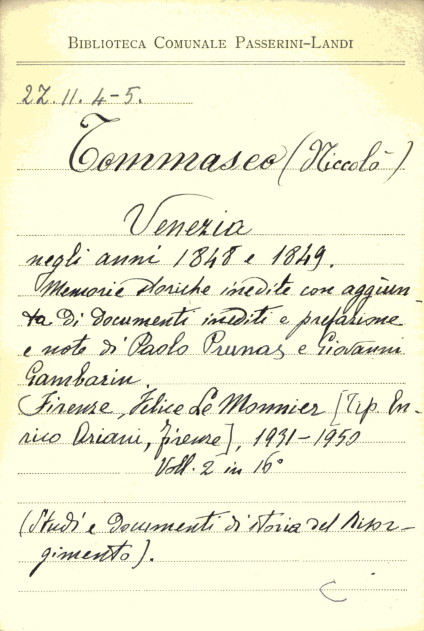 BIBLIOTECA COMUNALE PASSERINI-LANDI
2Z.11.4-5.
Tommaseo (Niccolò)
Venezia
negli anni 1848 e 1849.
Memorie storiche inedite con aggiun-
ta di documenti inediti e prefazione
e note di Paolo Prunas e Giovanni
Gambarin.
Firenze, Felice Le Monnier [Tip. En-
rico Ariani, Firenze], 1931-1950
Voll. 2 in 16°
(Studi e Documenti di storia del Risor-
gimento).